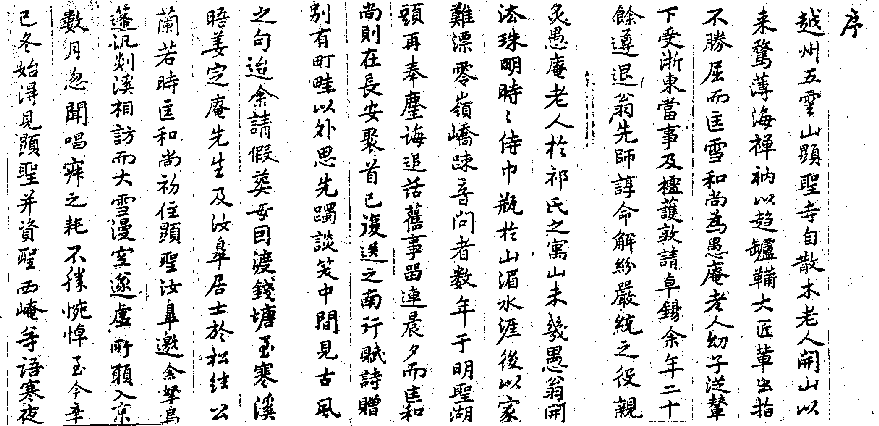 序
越州五雲山顯聖寺自散木老人開山以
來騖薄海禪衲以趋鑪鞴大匠輩出指
不勝屈而匡雪和尚為愚庵老人幼子從輦
下受浙東當事及檀護敦請卓錫余年二十
餘遵退翁先師諄命解紛嚴統之役親
炙愚庵老人於祁氏之寓山未幾愚翁開
法珠明時〻侍巾瓶於山湄水涯後以家
難漂零嶺嶠踈音問者数年于明聖湖
頭再奉麈誨追話舊事畱連晨夕而匡和
尚則在長安聚首已復送之南行賦詩贈
別有町畦以外思先躅談笑中間見古風
之句迨余請假葬母回渡錢塘至寒溪
晤姜定庵先生及汝皐居士於松 公
蘭若時匡和尚初住顯聖汝皐邀余拏舄
蓬汎剡溪相訪而大雪漫空遂虛所願入京
數月忽聞唱寂之耗不勝惋悼至今辛
已冬始得見顯聖并資聖西崦等語寒夜